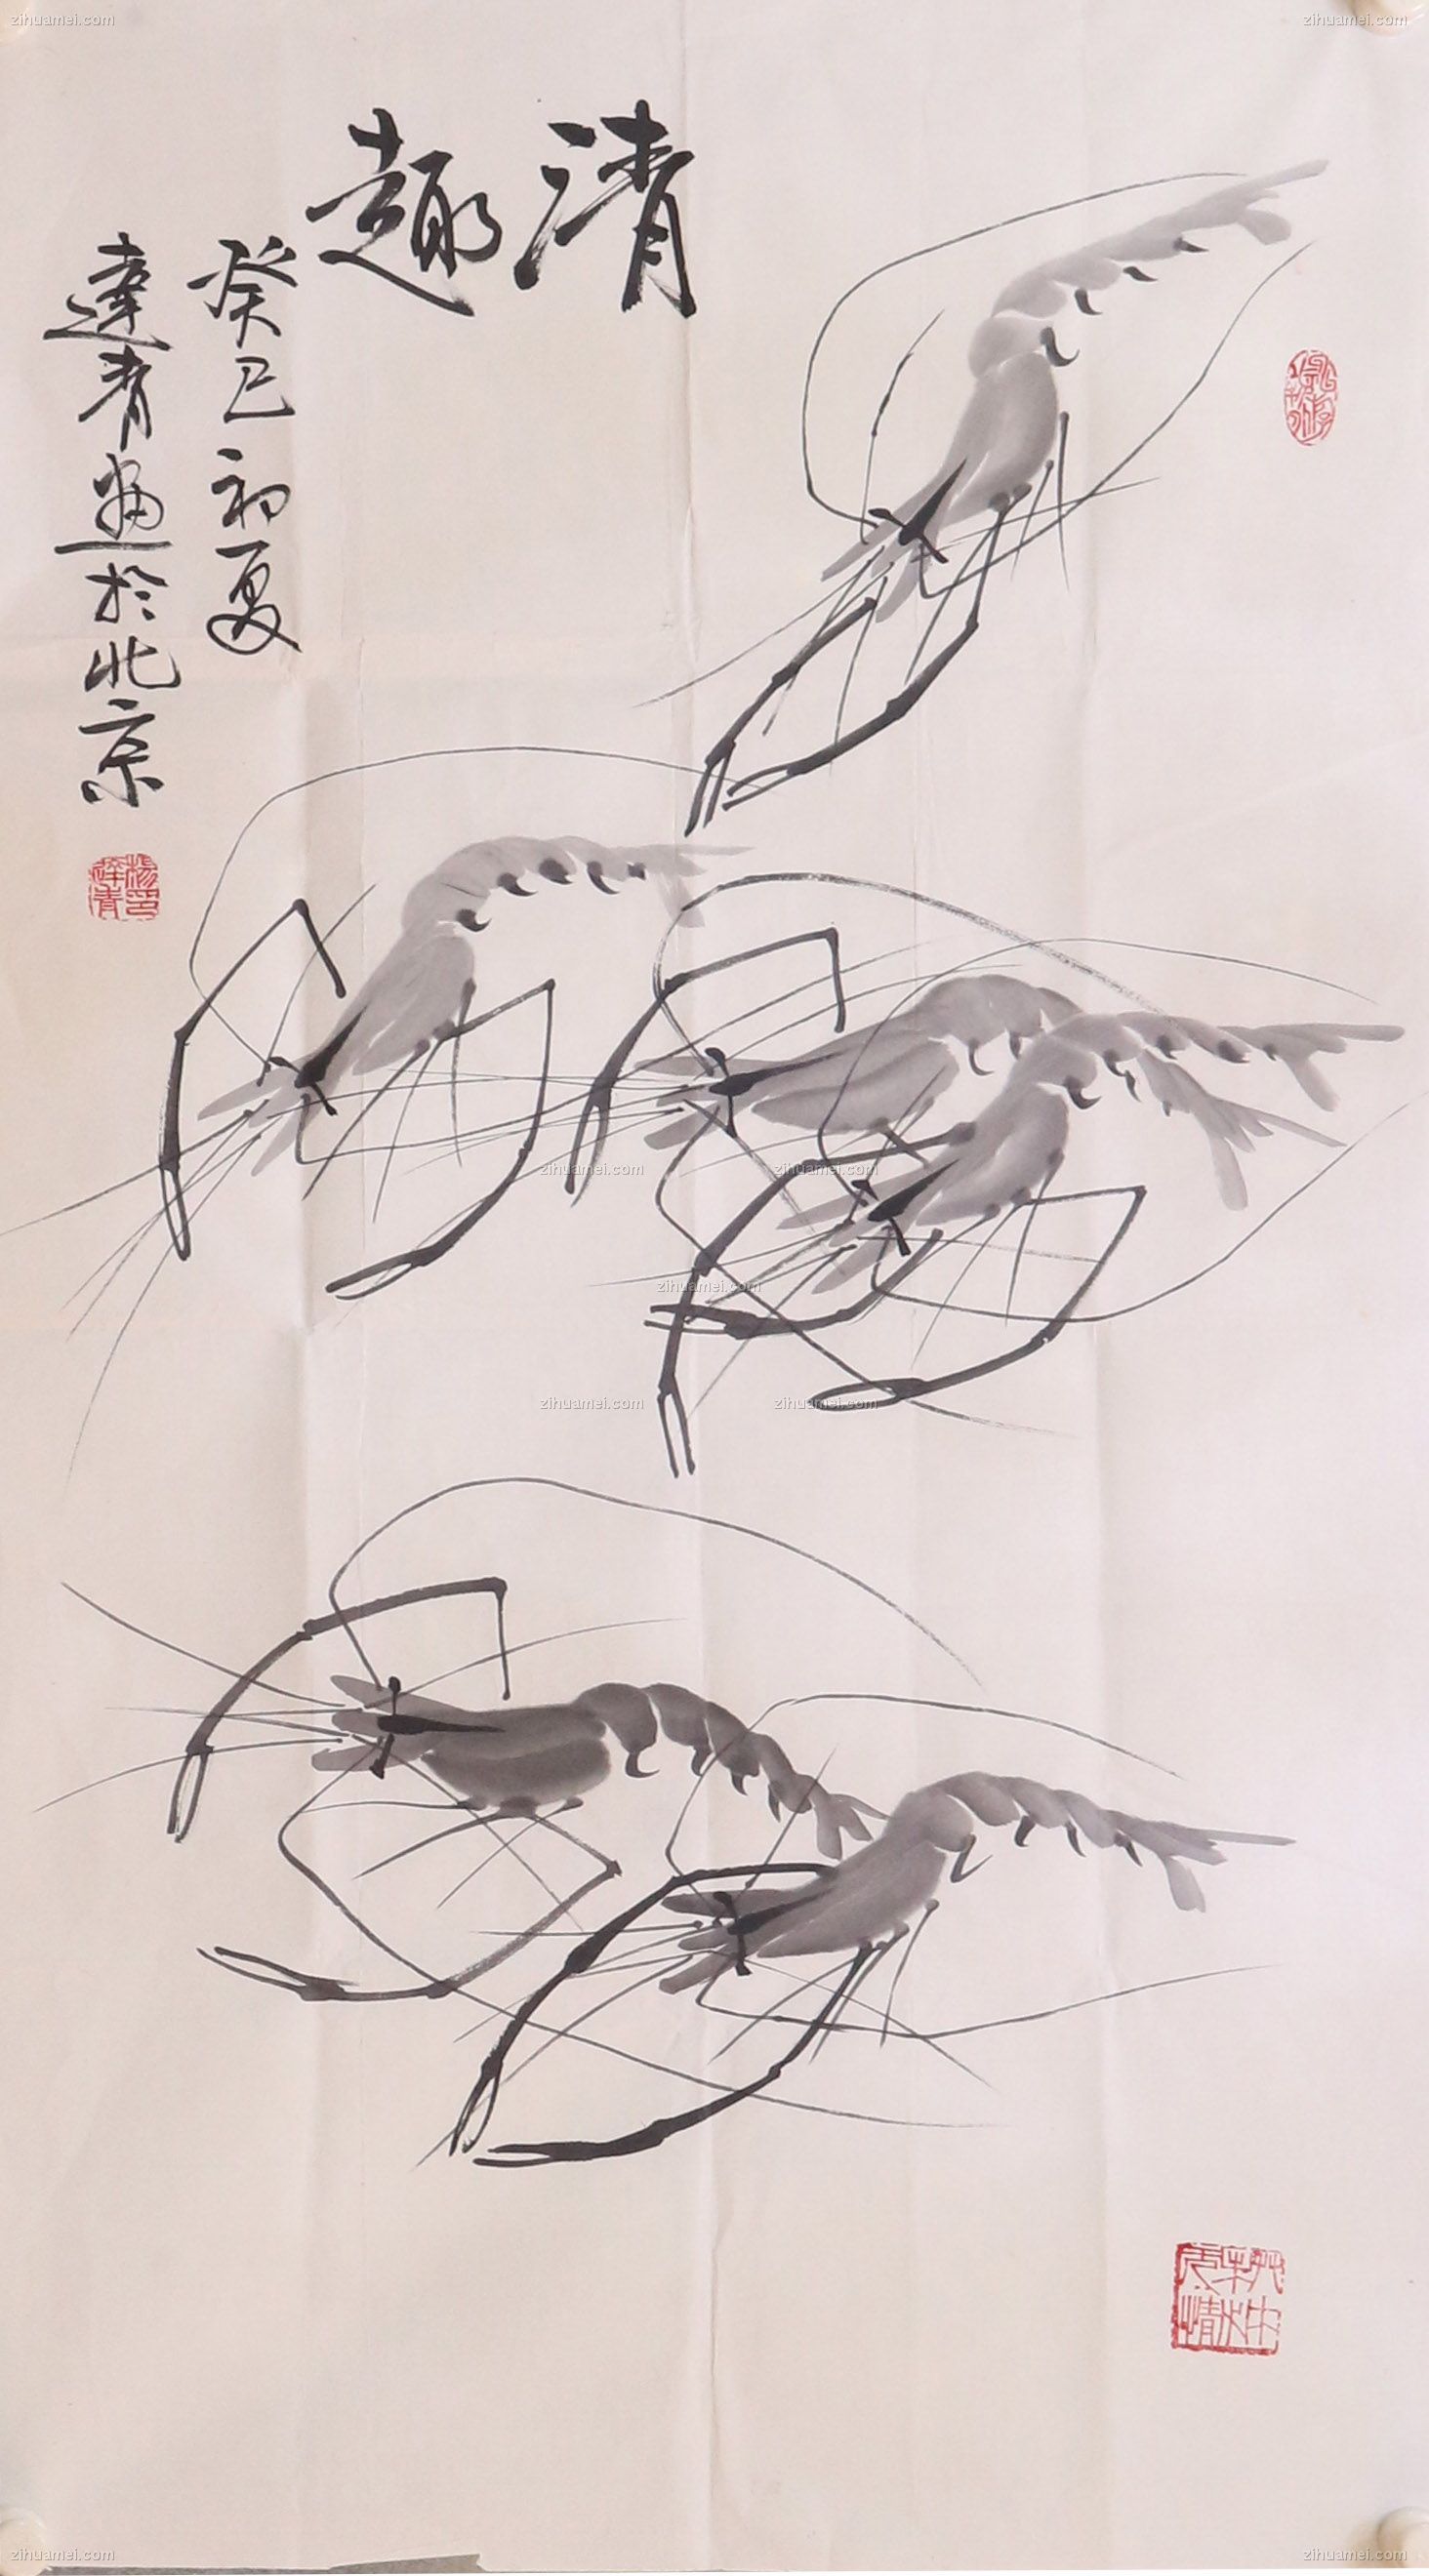 zihuamei.com
zihuamei.com
清趣
癸巳初夏
達青畫於北京
zihuamei.com
zihuamei.com
zihuamei.com
zihuamei.com
zihuamei.com
zihuamei.com
zihuamei.com